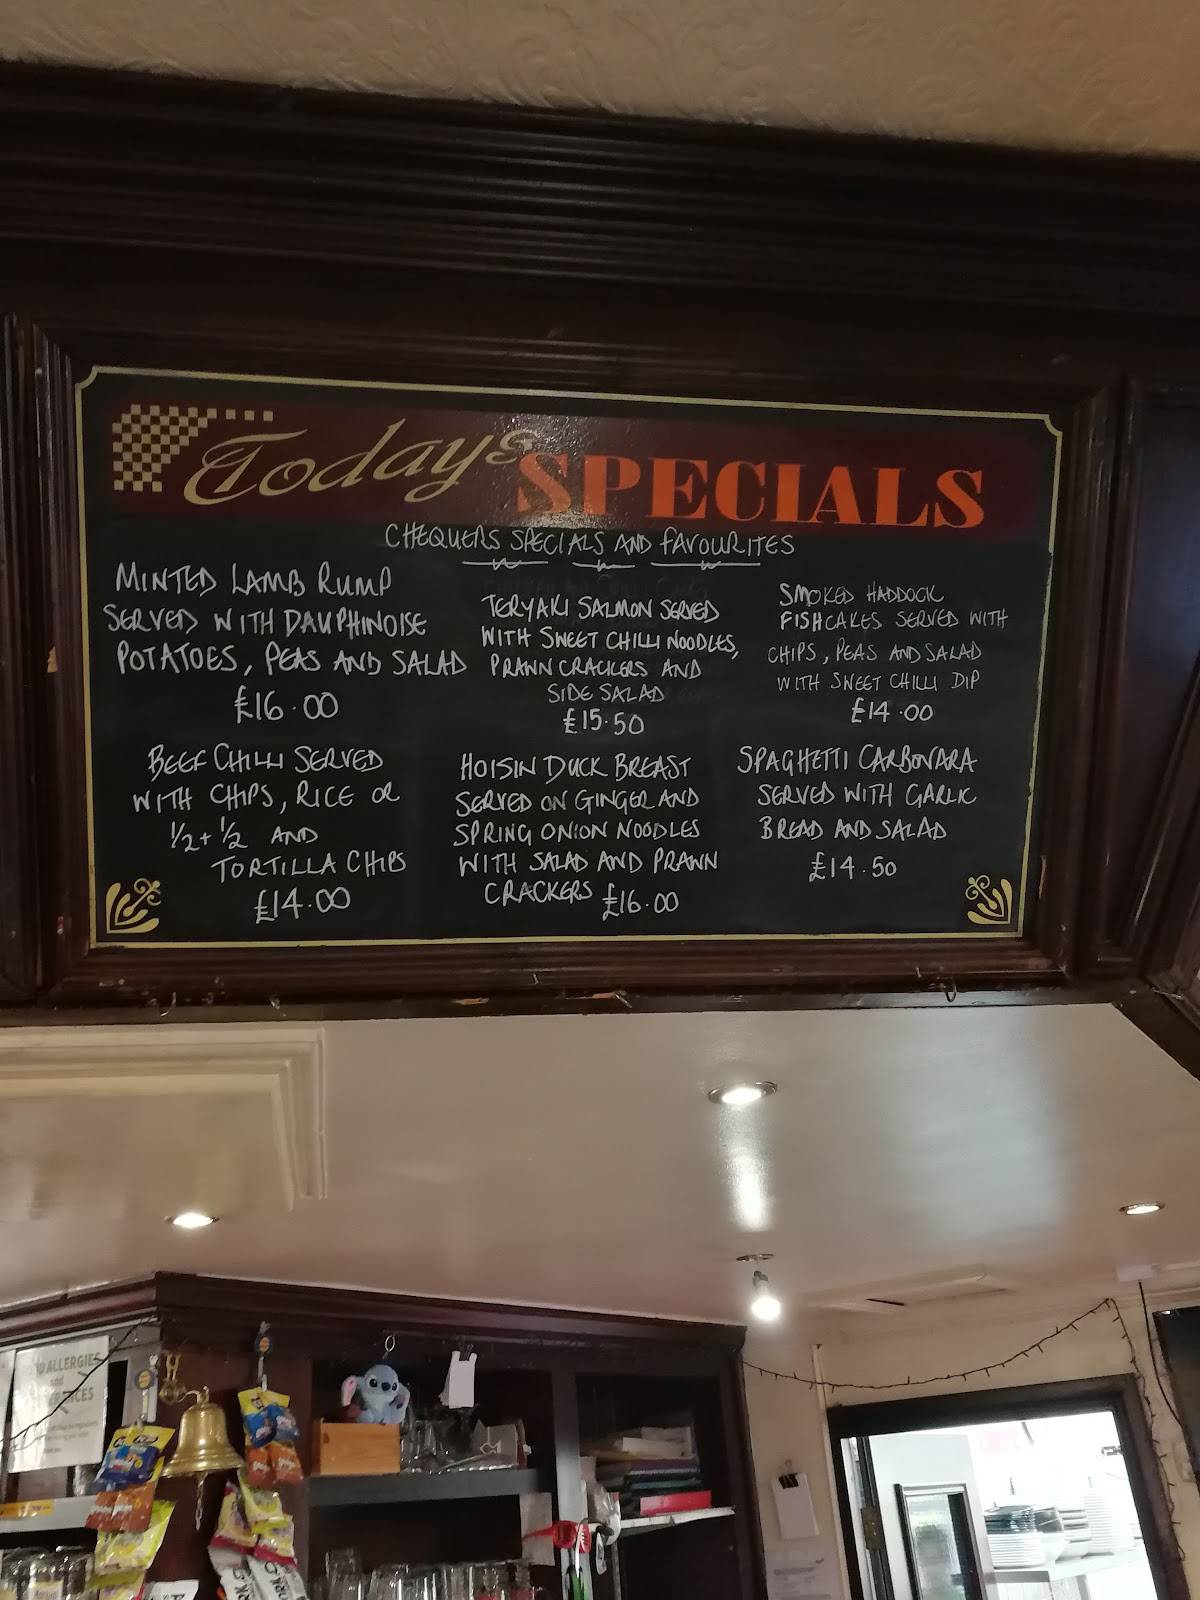 Today's SPECIALS
CHEQUERS SPECIALS AND FAVOURITES
MINTED LAMB RUMP
SERVED WITH DAUPHINOISE
POTATOES, PEAS AND SALAD
£16.00
TERYAKI SALMON SERVED
WITH SWEET CHILLI NOODLES,
PRAWN CRACKERS AND
SIDE SALAD
£15.50
SMOKED HADDOCK
FISHCAKES SERVED WITH
CHIPS, PEAS AND SALAD
WITH SWEET CHILLI DIP
£14.00
BEEF CHILLI SERVED
WITH CHIPS, RICE OR
1/2 + 1/2 AND
TORTILLA CHIPS
£14.00
HOISIN DUCK BREAST
SERVED ON GINGER AND
SPRING ONION NOODLES
WITH SALAD AND PRAWN
CRACKERS £16.00
SPAGHETTI CARBONARA
SERVED WITH GARLIC
BREAD AND SALAD
£14.50
ALLERGIES